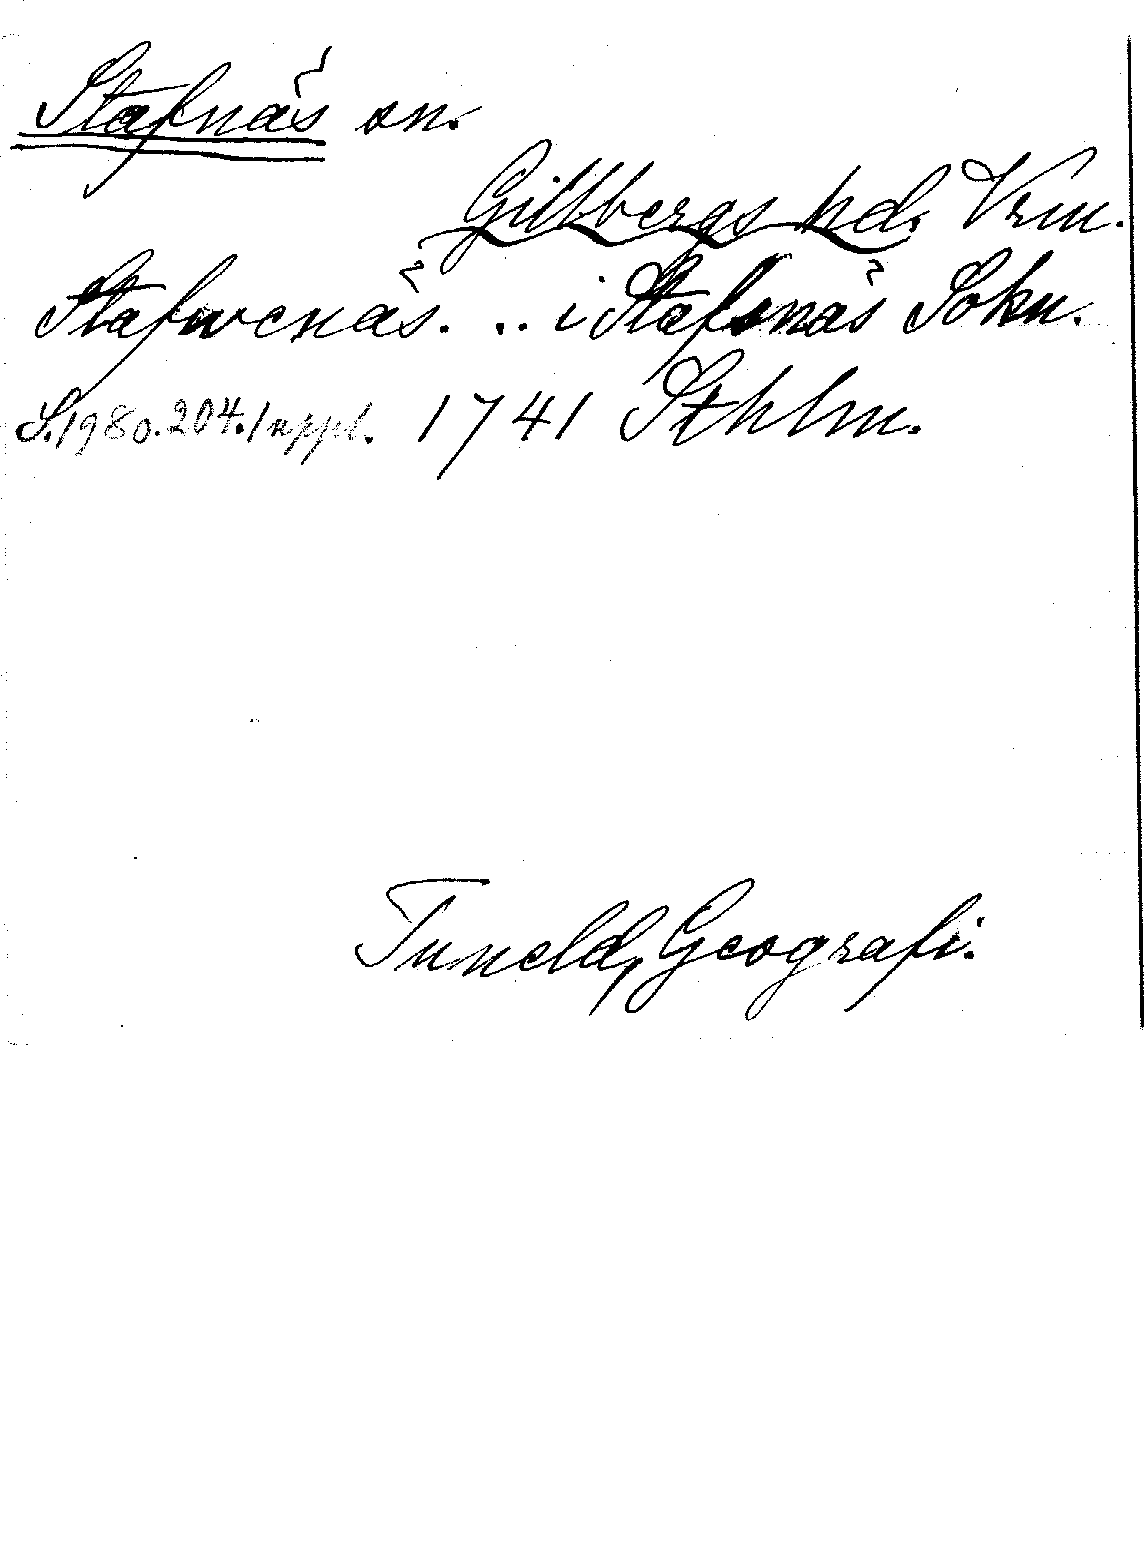 Stafnäs sn.
Gillbergs hd. Vrm.
Stafwenäs. .. i Stafsnäs Sokn.
S. 1980. 204. 1 uppl. 1741 Sthlm.
Tuneld, Geografi.